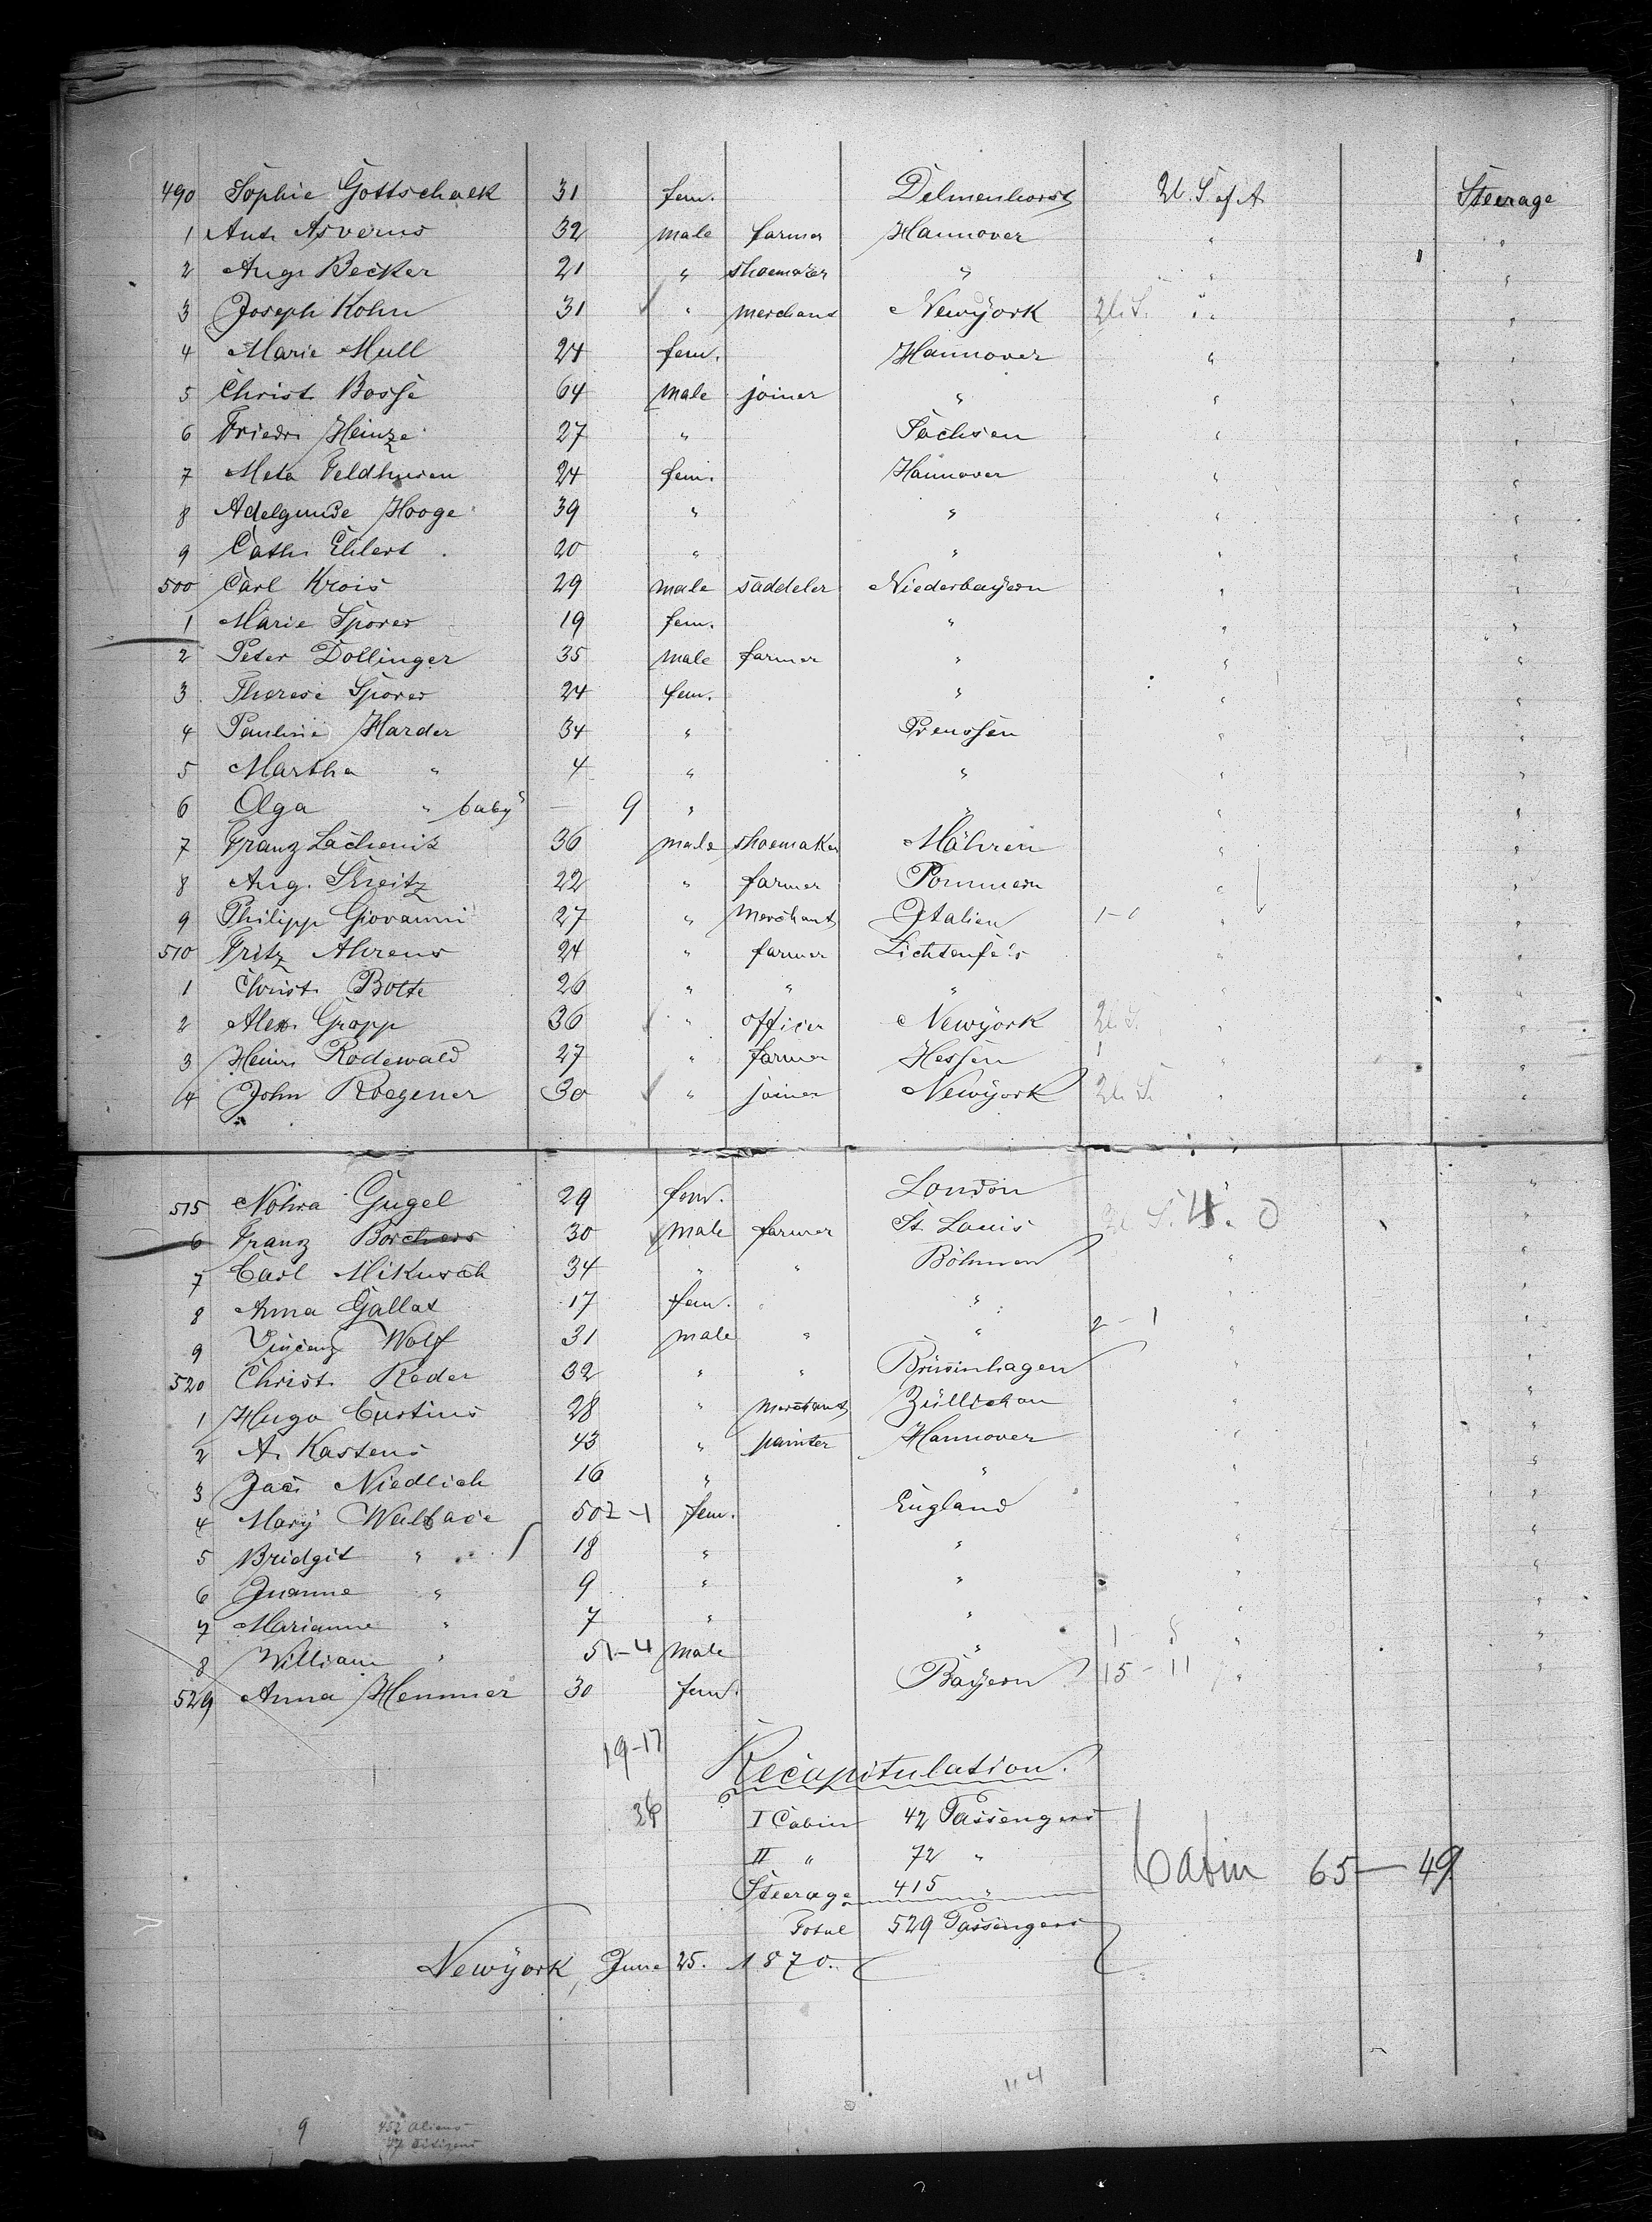 490 Sophie Gottschalk 31 fem. Delmenhorst U. S. of A. Steerage
1 Ant. Asverus 32 male farmer Hannover " "
2 Aug. Becker 21 " shoemaker " " "
3 Joseph Kohn 31 " merchant Newÿork U. S. " "
4 Marie Mull 24 fem. Hannover " "
5 Christ. Bosse 64 male joiner " " "
6 Friedr. Heinze 27 " Sachsen " "
7 Meta Feldhusen 24 fem. Hannover " "
8 Adelgunde Hooge 39 " " " "
9 Cath. Ehlert 20 " " " "
500 Carl Krois 29 male saddeler Niederbayern " "
1 Marie Sporer 19 fem. " " "
2 Peter Dollinger 35 male farmer " " "
3 Therese Sporer 24 fem. " " "
4 Pauline Harder 34 " Preussen " "
5 Martha " 4 " " " "
6 Olga " baby — 9 " " " "
7 Franz 36 male shoemaker Mähren " "
8 Aug. 22 " farmer Pommern " "
9 Philipp Giovanni 27 " merchant Italien 1-0 " "
510 Fritz Ahrens 24 " farmer Lichtenfe's " "
1 Christ. Botte 26 " " " " "
2 Alex. Gropp 36 " officer Newÿork U. S. " "
3 Heinr. Rodewald 27 " farmer Hessen 1 " "
4 John Roegener 30 " joiner Newÿork U. S. " "
515 Gugel 29 fem. London " "
6 Franz Borchers 30 male farmer St. Louis 4 0 "
7 Carl Mikusch 34 " " Böhmen " "
8 Anna Gallat 17 fem. " " " "
9 Vincenz Wolf 31 male " " 2-1 " "
520 Christ. Reder 32 " " " "
1 Hugo Curtius 28 " merchant Züllichau " "
2 A. Kastens 43 " painter Hannover " "
3 Jac. Niedlich 16 " " " "
4 Mary Wallace 50 2-1 fem. England " "
5 Bridgit " 18 " " " "
6 " 9 " " " "
7 Marianne " 7 " " " "
8 William " 5 1-4 male " " "
529 Anna Hemmer 30 fem. Bayern 15-11 " "
19-17
Recapitulation.
36 I Cabin 42 Passengers
II " 72 "
Cabin 65 — 49
Steerage 415 "
Total 529 Passengers
Newÿork, June 25. 1870.
114
9 452 Aliens
47 Citizens